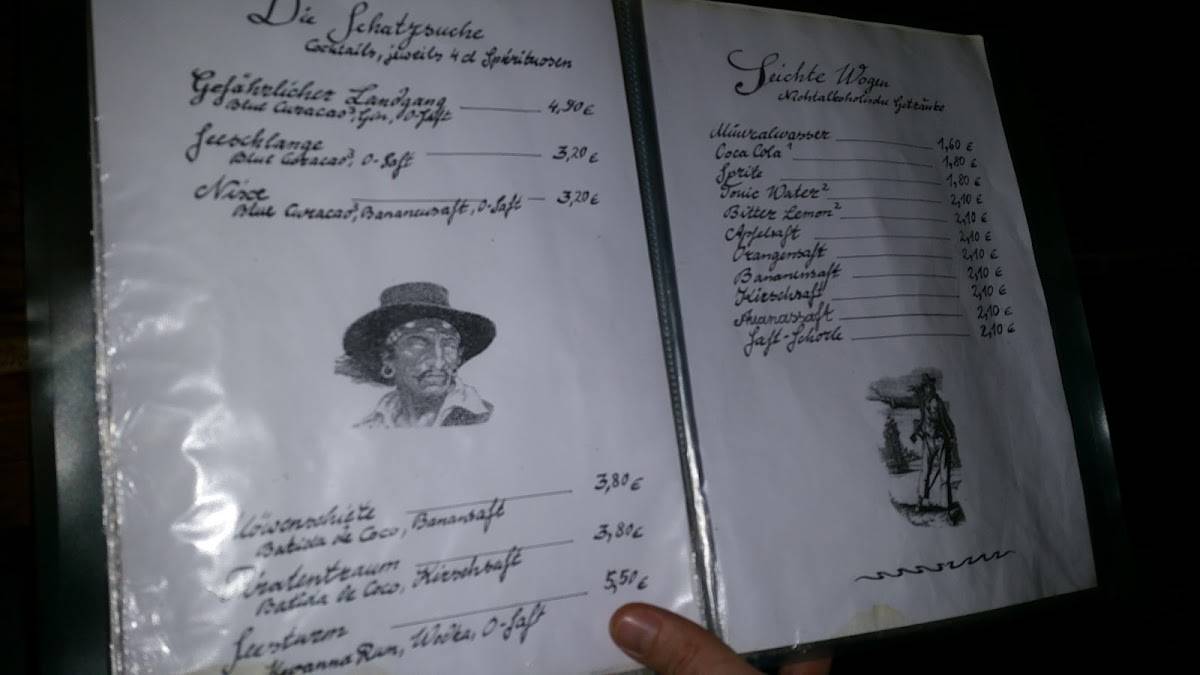 Die Schatzsuche
Cocktails, jeweils 4 cl Spirituosen
Gefährlicher Landgang 4,90 €
Blue Curacao³, Gin, O-Saft
Seeschlange 3,20 €
Blue Curacao³, O-Saft
Nixe 3,20 €
Blue Curacao³, Bananensaft, O-Saft
Löwenschiete 3,80 €
Batida de Coco, Bananensaft
Piratentraum 3,80 €
Batida de Coco, Kirschsaft
Seesturm 5,50 €
Havanna Rum, Wodka, O-Saft
Seichte Wogen
Nichtalkoholische Getränke
Mineralwasser 1,60 €
Coca Cola¹ 1,80 €
Sprite 1,80 €
Tonic Water² 2,10 €
Bitter Lemon² 2,10 €
Apfelsaft 2,10 €
Orangensaft 2,10 €
Bananensaft 2,10 €
Kirschsaft 2,10 €
Ananassaft 2,10 €
Saft-Schorle 2,10 €